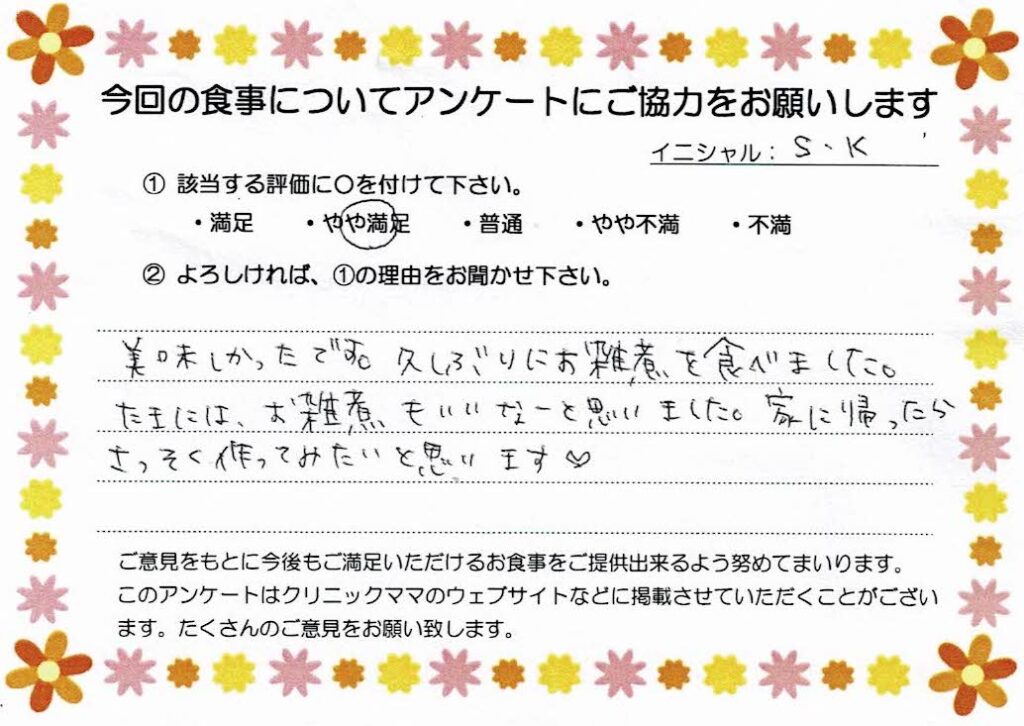 今回の食事についてアンケートにご協力をお願いします
イニシャル： S、K
① 該当する評価に○を付けて下さい。
・満足 ・やや満足 ・普通 ・やや不満 ・不満
② よろしければ、①の理由をお聞かせ下さい。
美味しかったです。久しぶりにお雑煮を食べました。
たまには、お雑煮もいいなーと思いました。家に帰ったら
さっそく作ってみたいと思います♡
ご意見をもとに今後もご満足いただけるお食事をご提供出来るよう努めてまいります。
このアンケートはクリニックママのウェブサイトなどに掲載させていただくことがござい
ます。たくさんのご意見をお願い致します。